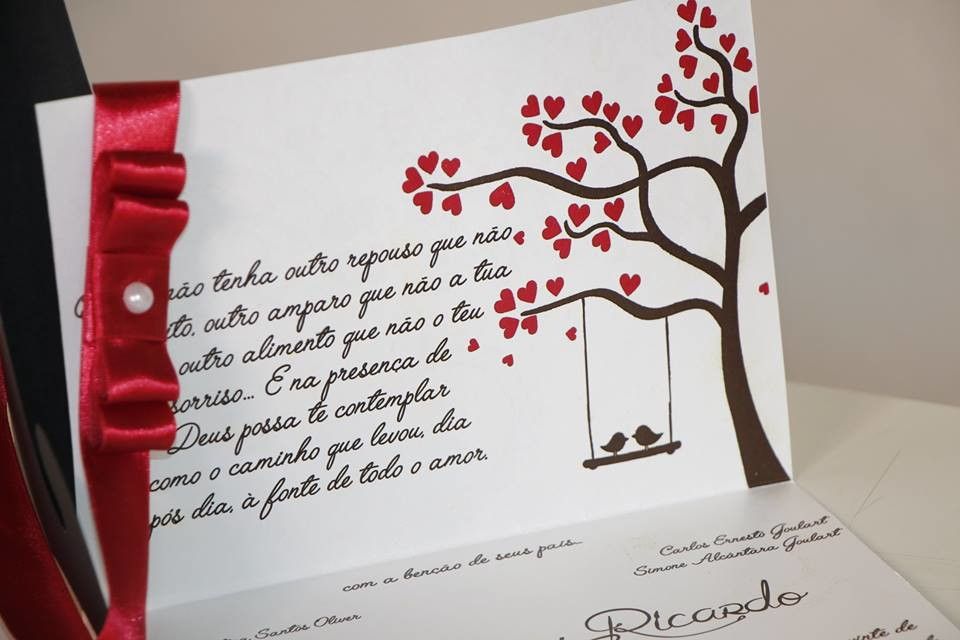 não tenha outro repouso que não
outro amparo que não a tua
outro alimento que não o teu
sorriso... E na presença de
Deus possa te contemplar
como o caminho que levou, dia
pós dia, à fonte de todo o amor.
com a benção de seus pais...
Carlos Ernesto Goulart
Simone Alcântara Goulart
Santos Oliver
Ricardo
de